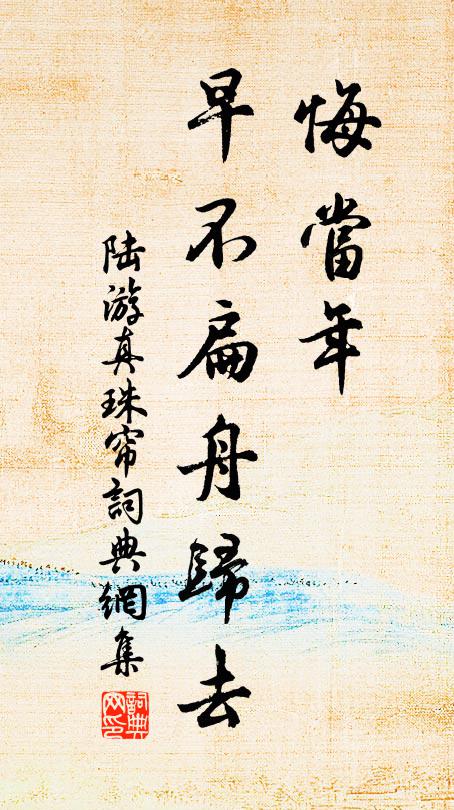 悔當年
早不扁舟歸去
陆游真珠帘詞典網集
詞典
网印